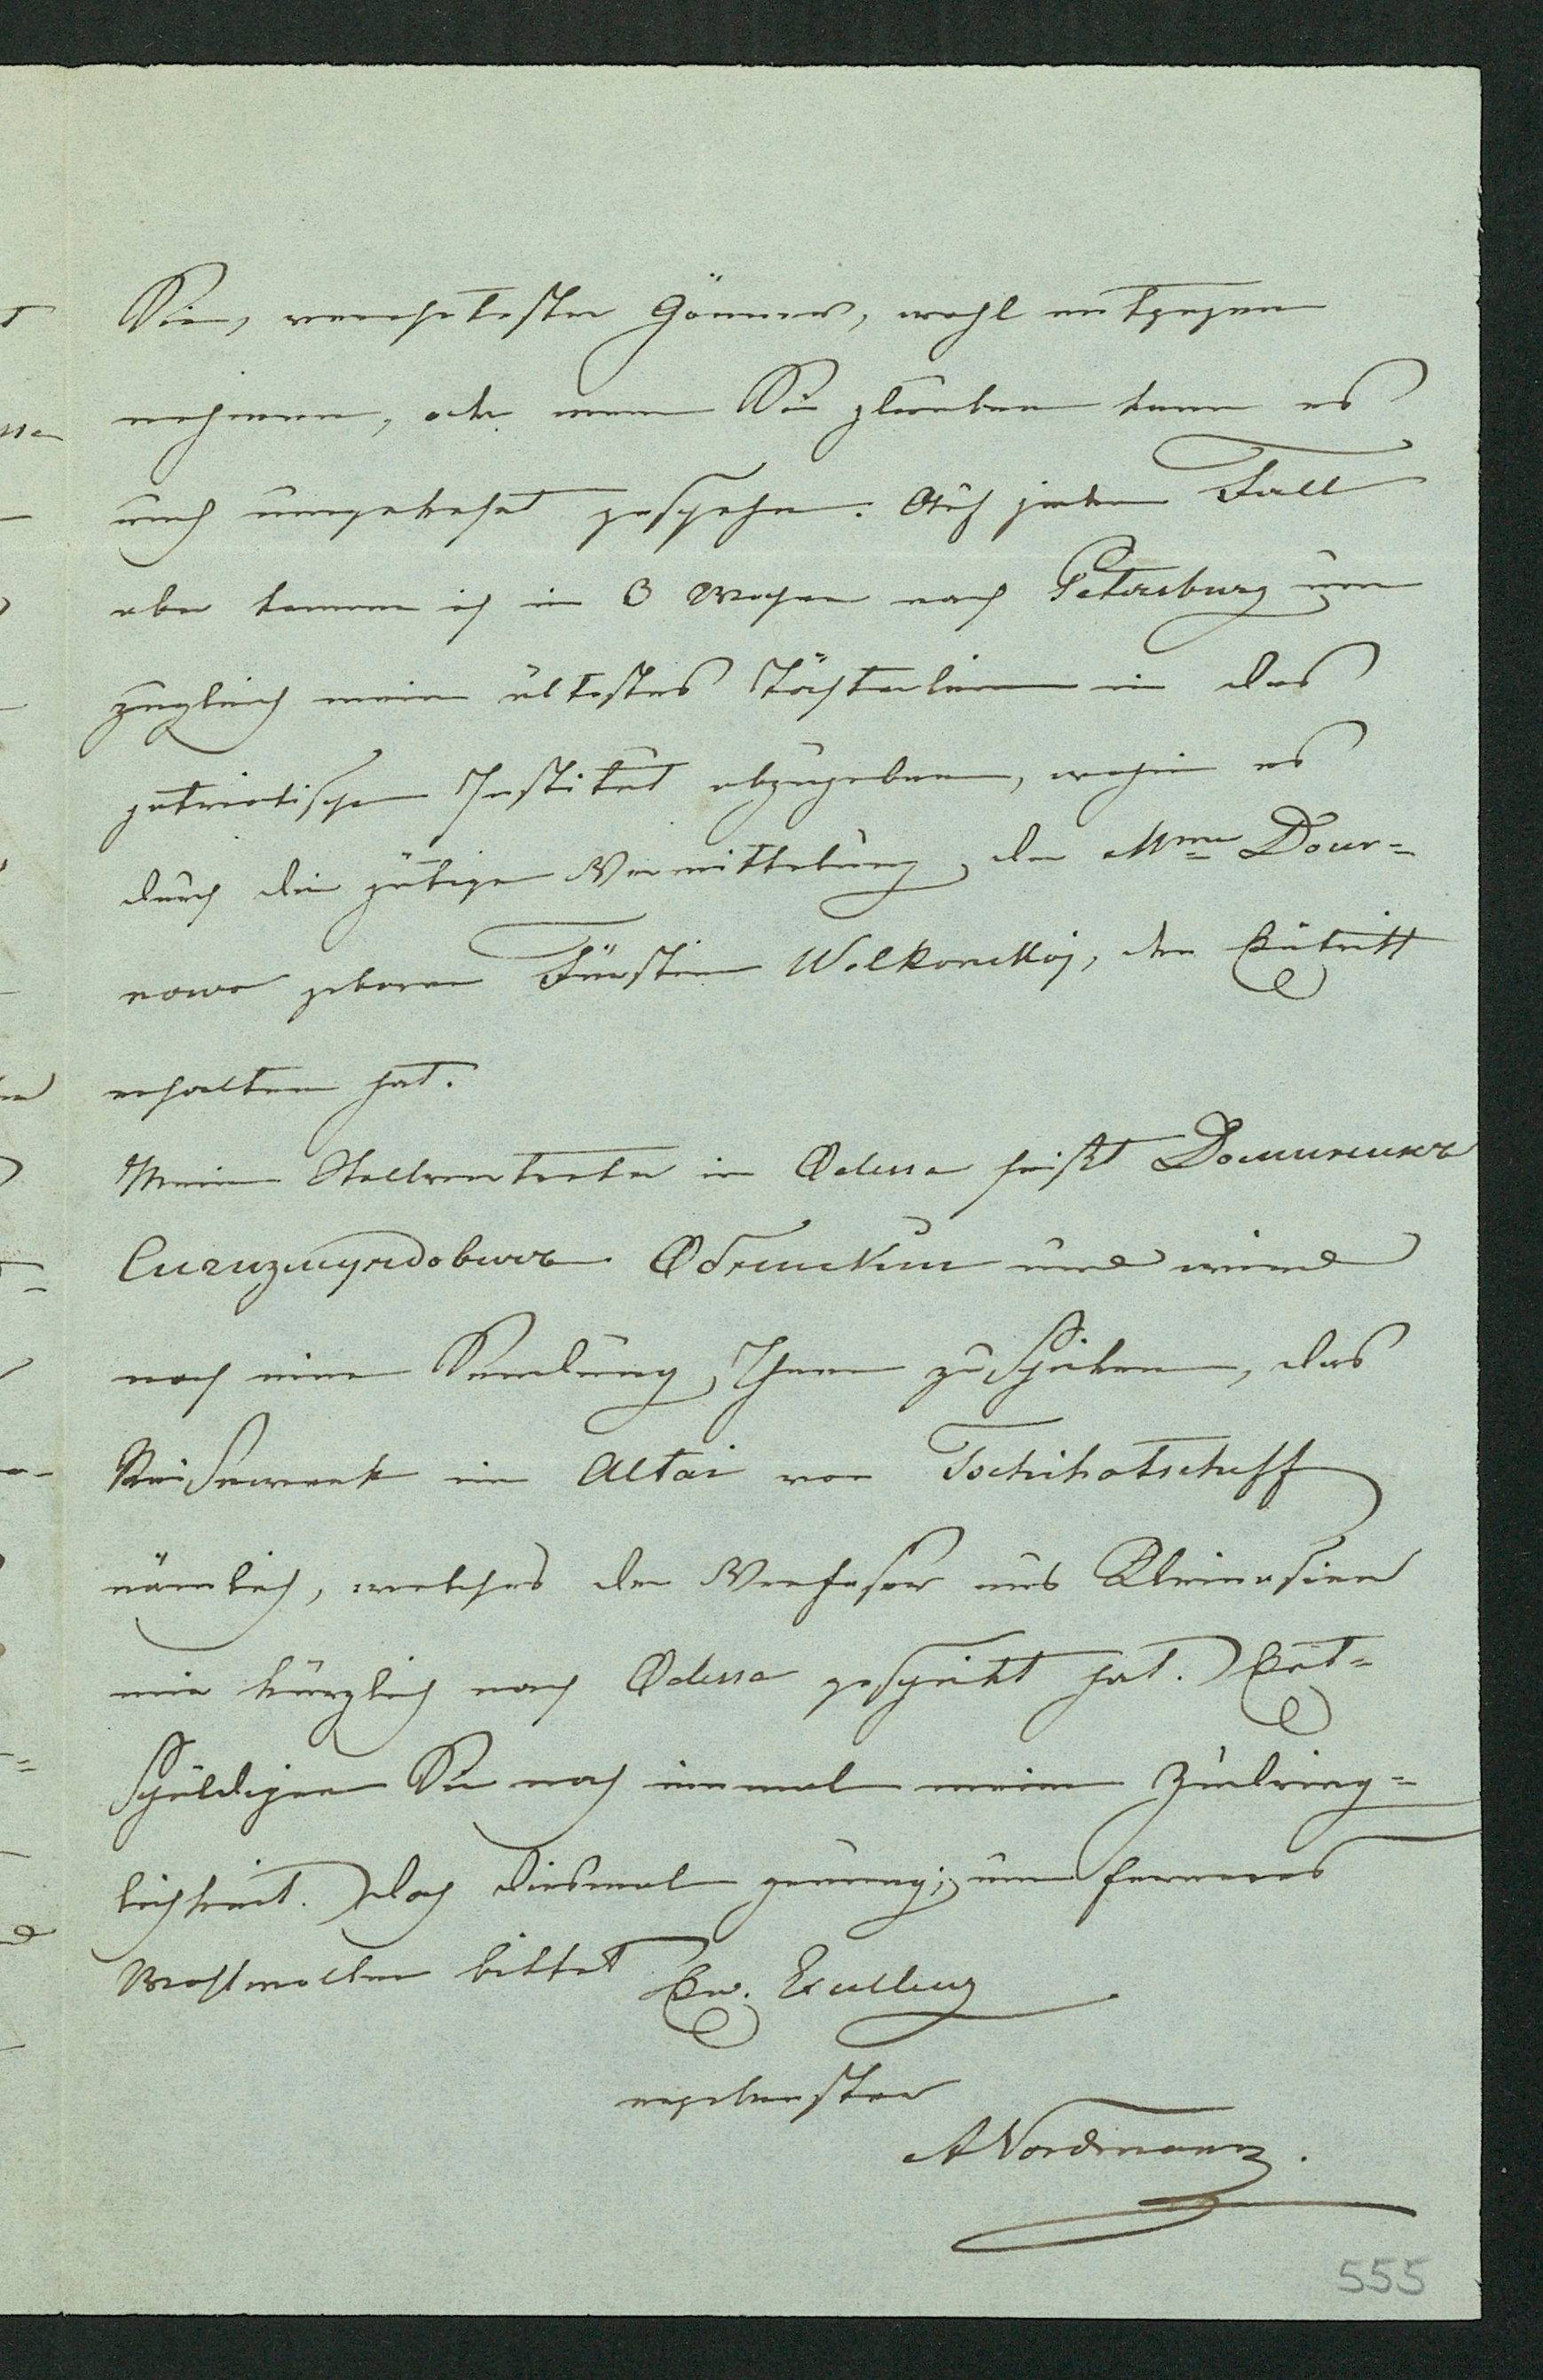 Sie, verehrtester Gönner, wohl entgegen
nehmen, oder wenn Sie glauben kann es
auch umgekehrt geschehen. Auf jeden Fall
aber komme ich in 3 Wochen nach Petersburg um
zugleich mein ältestes Töchterlein in das
patriotische Institut abzugeben, wohin es
durch die gütige Vermittelung der Mme Dour=
nowo geborene Fürstin Wolkonskoj, den Eintritt
erhalten hat.
Mein Stellvertreter in Odessa heißt Доминикъ
Сигизмундовичъ und wird
noch eine Sendung Ihnen zuschicken, das
Reisewerk im Altai von Tschihatscheff
nämlich, welches der Verfasser aus Kleinasien
mir kürzlich nach Odessa geschickt hat. Ent=
schuldigen Sie noch einmal meine Zudring=
lichkeit. Doch diesmal genug; um ferneres
Wohlwollen bittet Ew. Excellenz
ergebenster
ANordmann.
555